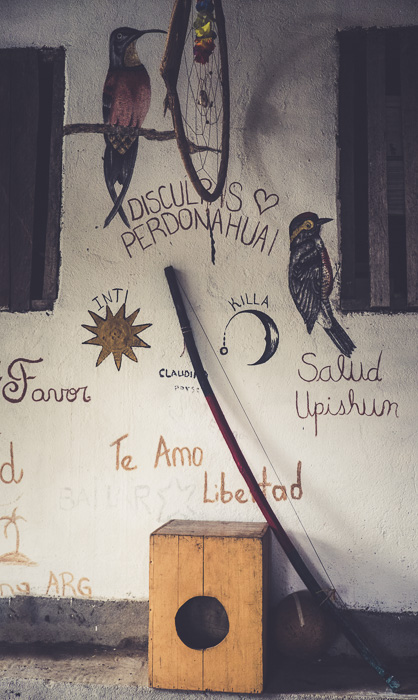 DISCULPAS
PERDONAHUAI
INTI
KILLA
CLAUDI
Favor
Salud
Upishun
Te Amo
Libertad
BAILAR
ARG